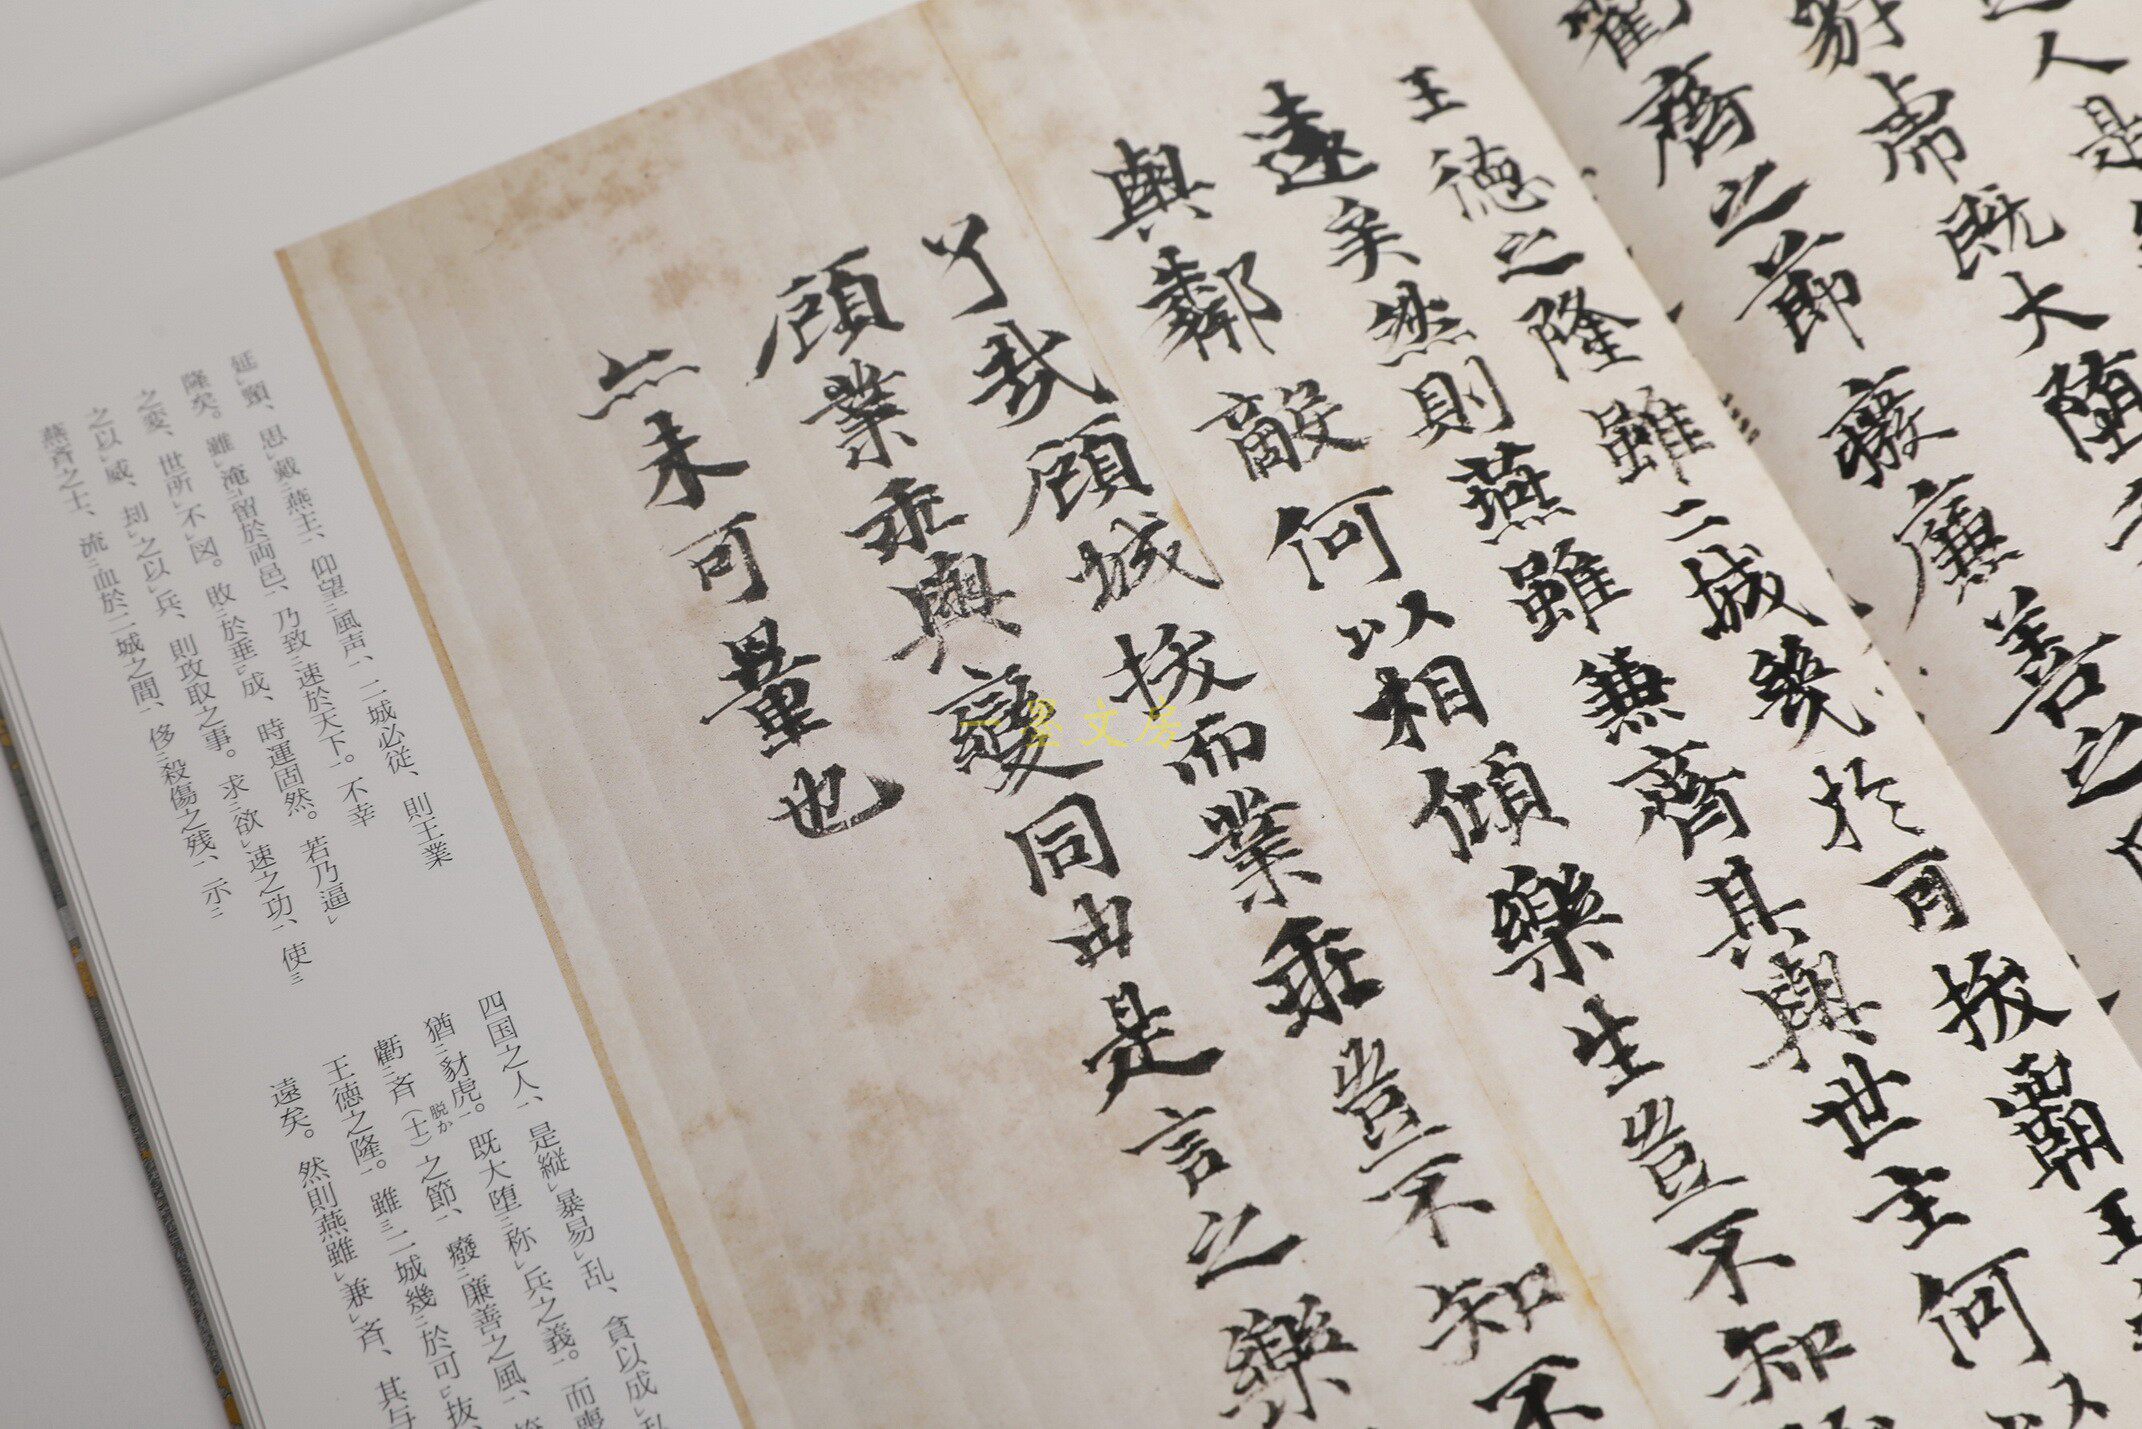 人是
豺虎既大堕
虧齊之節癈廉善之
王德之隆雖二城幾於可拔霸王
遠矣然則燕雖兼齊其與世主何以
與鄰敵何以相傾樂生豈不知
了哉顧城拔而業乖豈不知不
顧業乖與變同由是言之樂
亦未可量也
文房
延頸、思戴燕主、仰望風声、二城必従、則王業
隆矣。雖淹留於両邑、乃致速於天下。不幸
之変、世所不図。敗於垂成、時運固然。若乃逼
之以威、劫之以兵、則攻取之事。求欲速之功、使
燕斉之士、流血於二城之間、侈殺傷之残、示
四国之人、是縦暴易乱、貪以成私
猶豺虎。既大堕称兵之義。而喪
虧斉(士)之節、癈廉善之風、
脱か
王徳之隆。雖二城幾於可抜、
遠矣。然則燕雖兼斉、其与